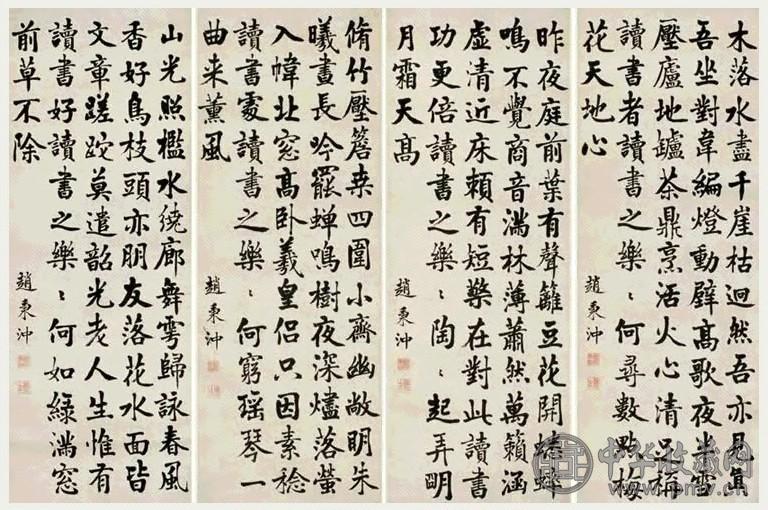 山光照檻水繞廊舞雩歸詠春風
香好鳥枝頭亦朋友落花水面皆
文章蹉跎莫遣韶光老人生惟有
讀書好讀書之樂〻何如綠滿窓
前草不除
趙秉沖
脩竹壓簷桒四圍小齋幽敞明朱
曦晝長吟罷蟬鳴樹夜深燼落螢
入幃北窓高卧羲皇侶只因素稔
讀書處讀書之樂〻何窮瑶琴一
曲来薰風
趙秉沖
昨夜庭前葉有聲籬豆花開蟋蟀
鳴不覺商音滿林薄蕭然萬籟涵
虛清近床頼有短檠在對此讀書
功更倍讀書之樂〻陶〻起弄明
月霜天高
趙秉沖
木落水盡千崖枯迥然吾亦見真
吾坐對韋編燈動壁高歌夜半雪
壓廬地罏茶鼎烹活火心清足稱
讀書者讀書之樂〻何尋數點梅
花天地心
趙秉沖
中华收藏网